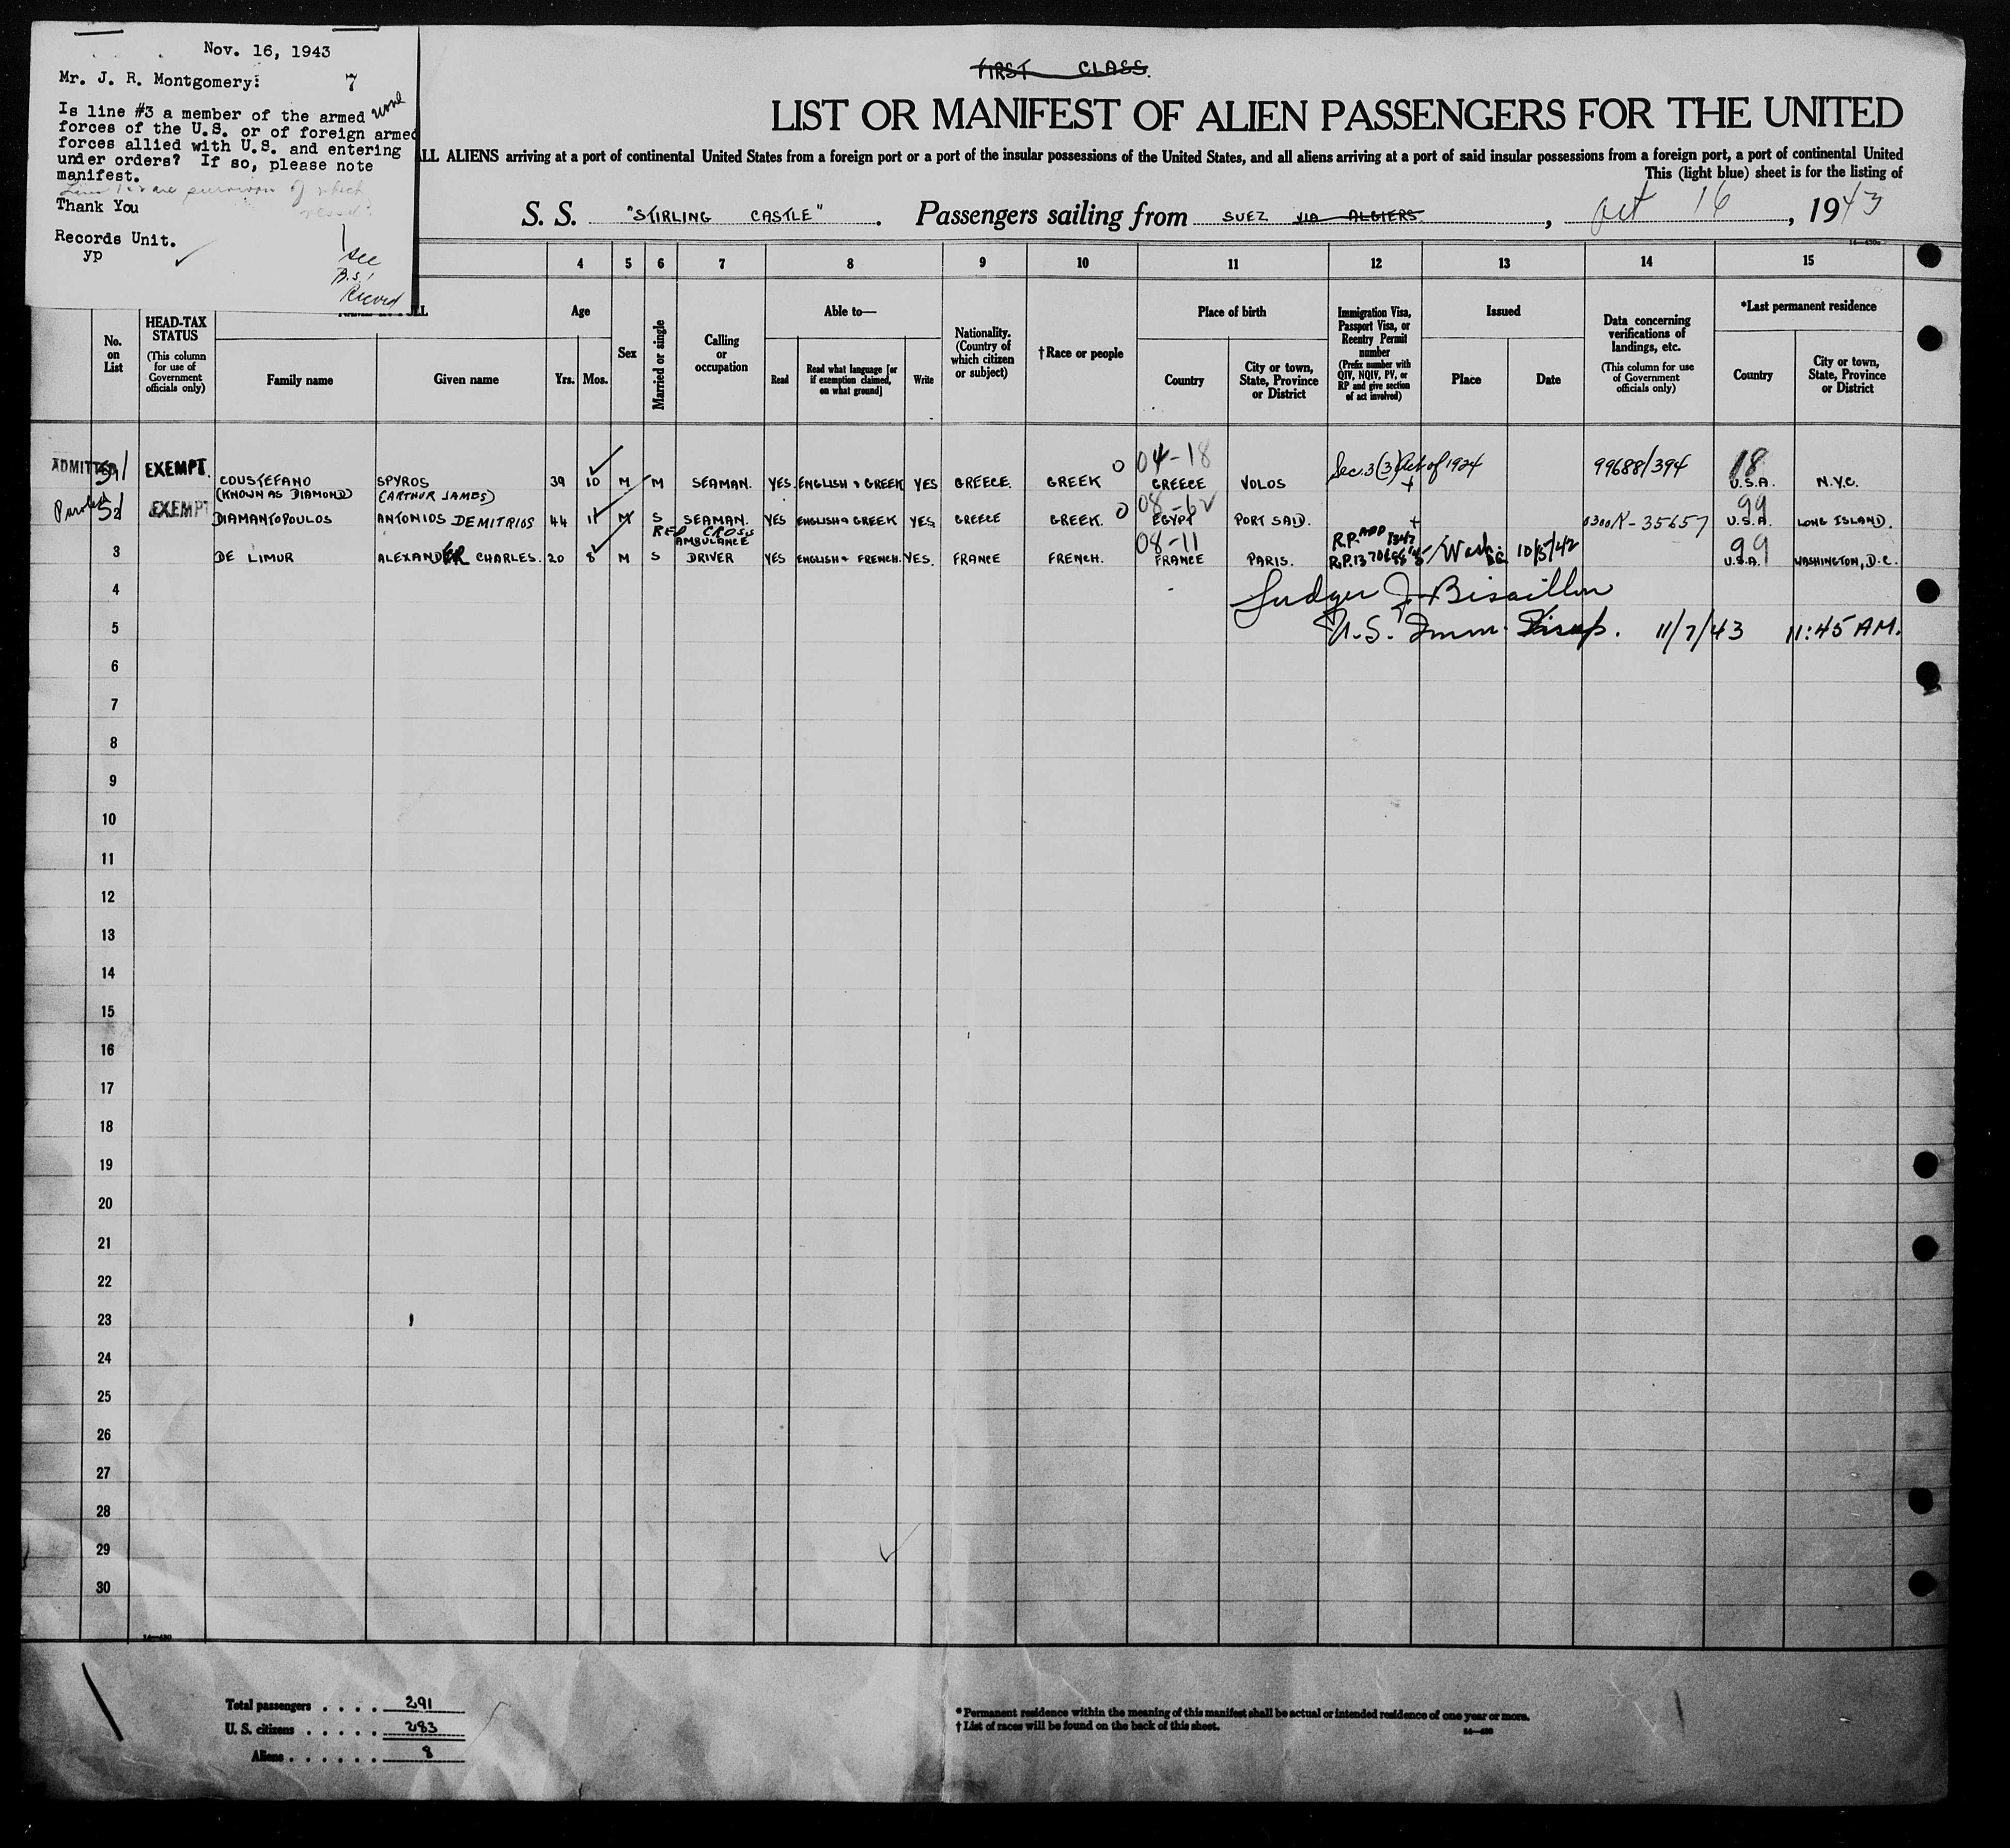 Nov. 16, 1943
Mr. J. R. Montgomery: 7
Is line #3 a member of the armed none
forces of the U.S. or of foreign armed
forces allied with U.S. and entering
under orders? If so, please note
manifest.
Thank You
Records Unit.
yp
see
B.S.I
Record
FIRST CLASS.
LIST OR MANIFEST OF ALIEN PASSENGERS FOR THE UNITED
ALL ALIENS arriving at a port of continental United States from a foreign port or a port of the insular possessions of the United States, and all aliens arriving at a port of said insular possessions from a foreign port, a port of continental United
This (light blue) sheet is for the listing of
S. S. "STIRLING CASTLE". Passengers sailing from SUEZ VIA ALGIERS. , Oct 16 , 1943
4 5 6 7 8 9 10 11 12 13 14 15
No. on List
HEAD-TAX STATUS (This column for use of Government officials only)
Family name
Given name
Age
Yrs. Mos.
Sex
Married or single
Calling or occupation
Able to—
Read
Read what language [or if exemption claimed, on what ground]
Write
Nationality. (Country of which citizen or subject)
†Race or people
Place of birth
Country
City or town, State, Province or District
Immigration Visa, Passport Visa, or Reentry Permit number (Prefix number with QIV, NQIV, PV, or RP and give section of act involved)
Issued
Place
Date
Data concerning verifications of landings, etc. (This column for use of Government officials only)
*Last permanent residence
Country
City or town, State, Province or District
04-18 18
ADMITTED 1 EXEMPT. COUSTEFANO SPYROS 39 10 M M SEAMAN. YES. ENGLISH & GREEK YES GREECE. GREEK GREECE VOLOS Sec. 3(3) Act of 1924 99688/394 U.S.A. N.Y.C.
(KNOWN AS DIAMOND) (ARTHUR JAMES)
08-62 99
Paroled 2 EXEMPT DIAMANTOPOULOS ANTONIOS DEMITRIOS 44 11 M S SEAMAN. YES ENGLISH & GREEK YES GREECE GREEK. EGYPT PORT SAID. 0300K-35657 U.S.A. LONG ISLAND.
RED CROSS
AMBULANCE
08-11 99
3 DE LIMUR ALEXANDER CHARLES. 20 8 M S DRIVER YES ENGLISH & FRENCH. YES. FRANCE FRENCH. FRANCE PARIS. Wash. DC 10/5/42 U.S.A. WASHINGTON, D.C.
4
5 U.S. Imm. Insp. 11/7/43 11:45 AM.
6
7
8
9
10
11
12
13
14
15
16
17
18
19
20
21
22
23
24
25
26
27
28
29
30
Total passengers . . . . 291
U. S. citizens . . . . . 283
Aliens . . . . . . 8
* Permanent residence within the meaning of this manifest shall be actual or intended residence of one year or more.
† List of races will be found on the back of this sheet.